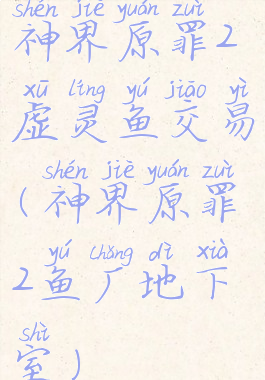 shén jiè yuán zuì
神界原罪2
xū líng yú jiāo yì
虚灵鱼交易
shén jiè yuán zuì
(神界原罪
yú chǎng dì xià
2鱼厂地下
shì
室)